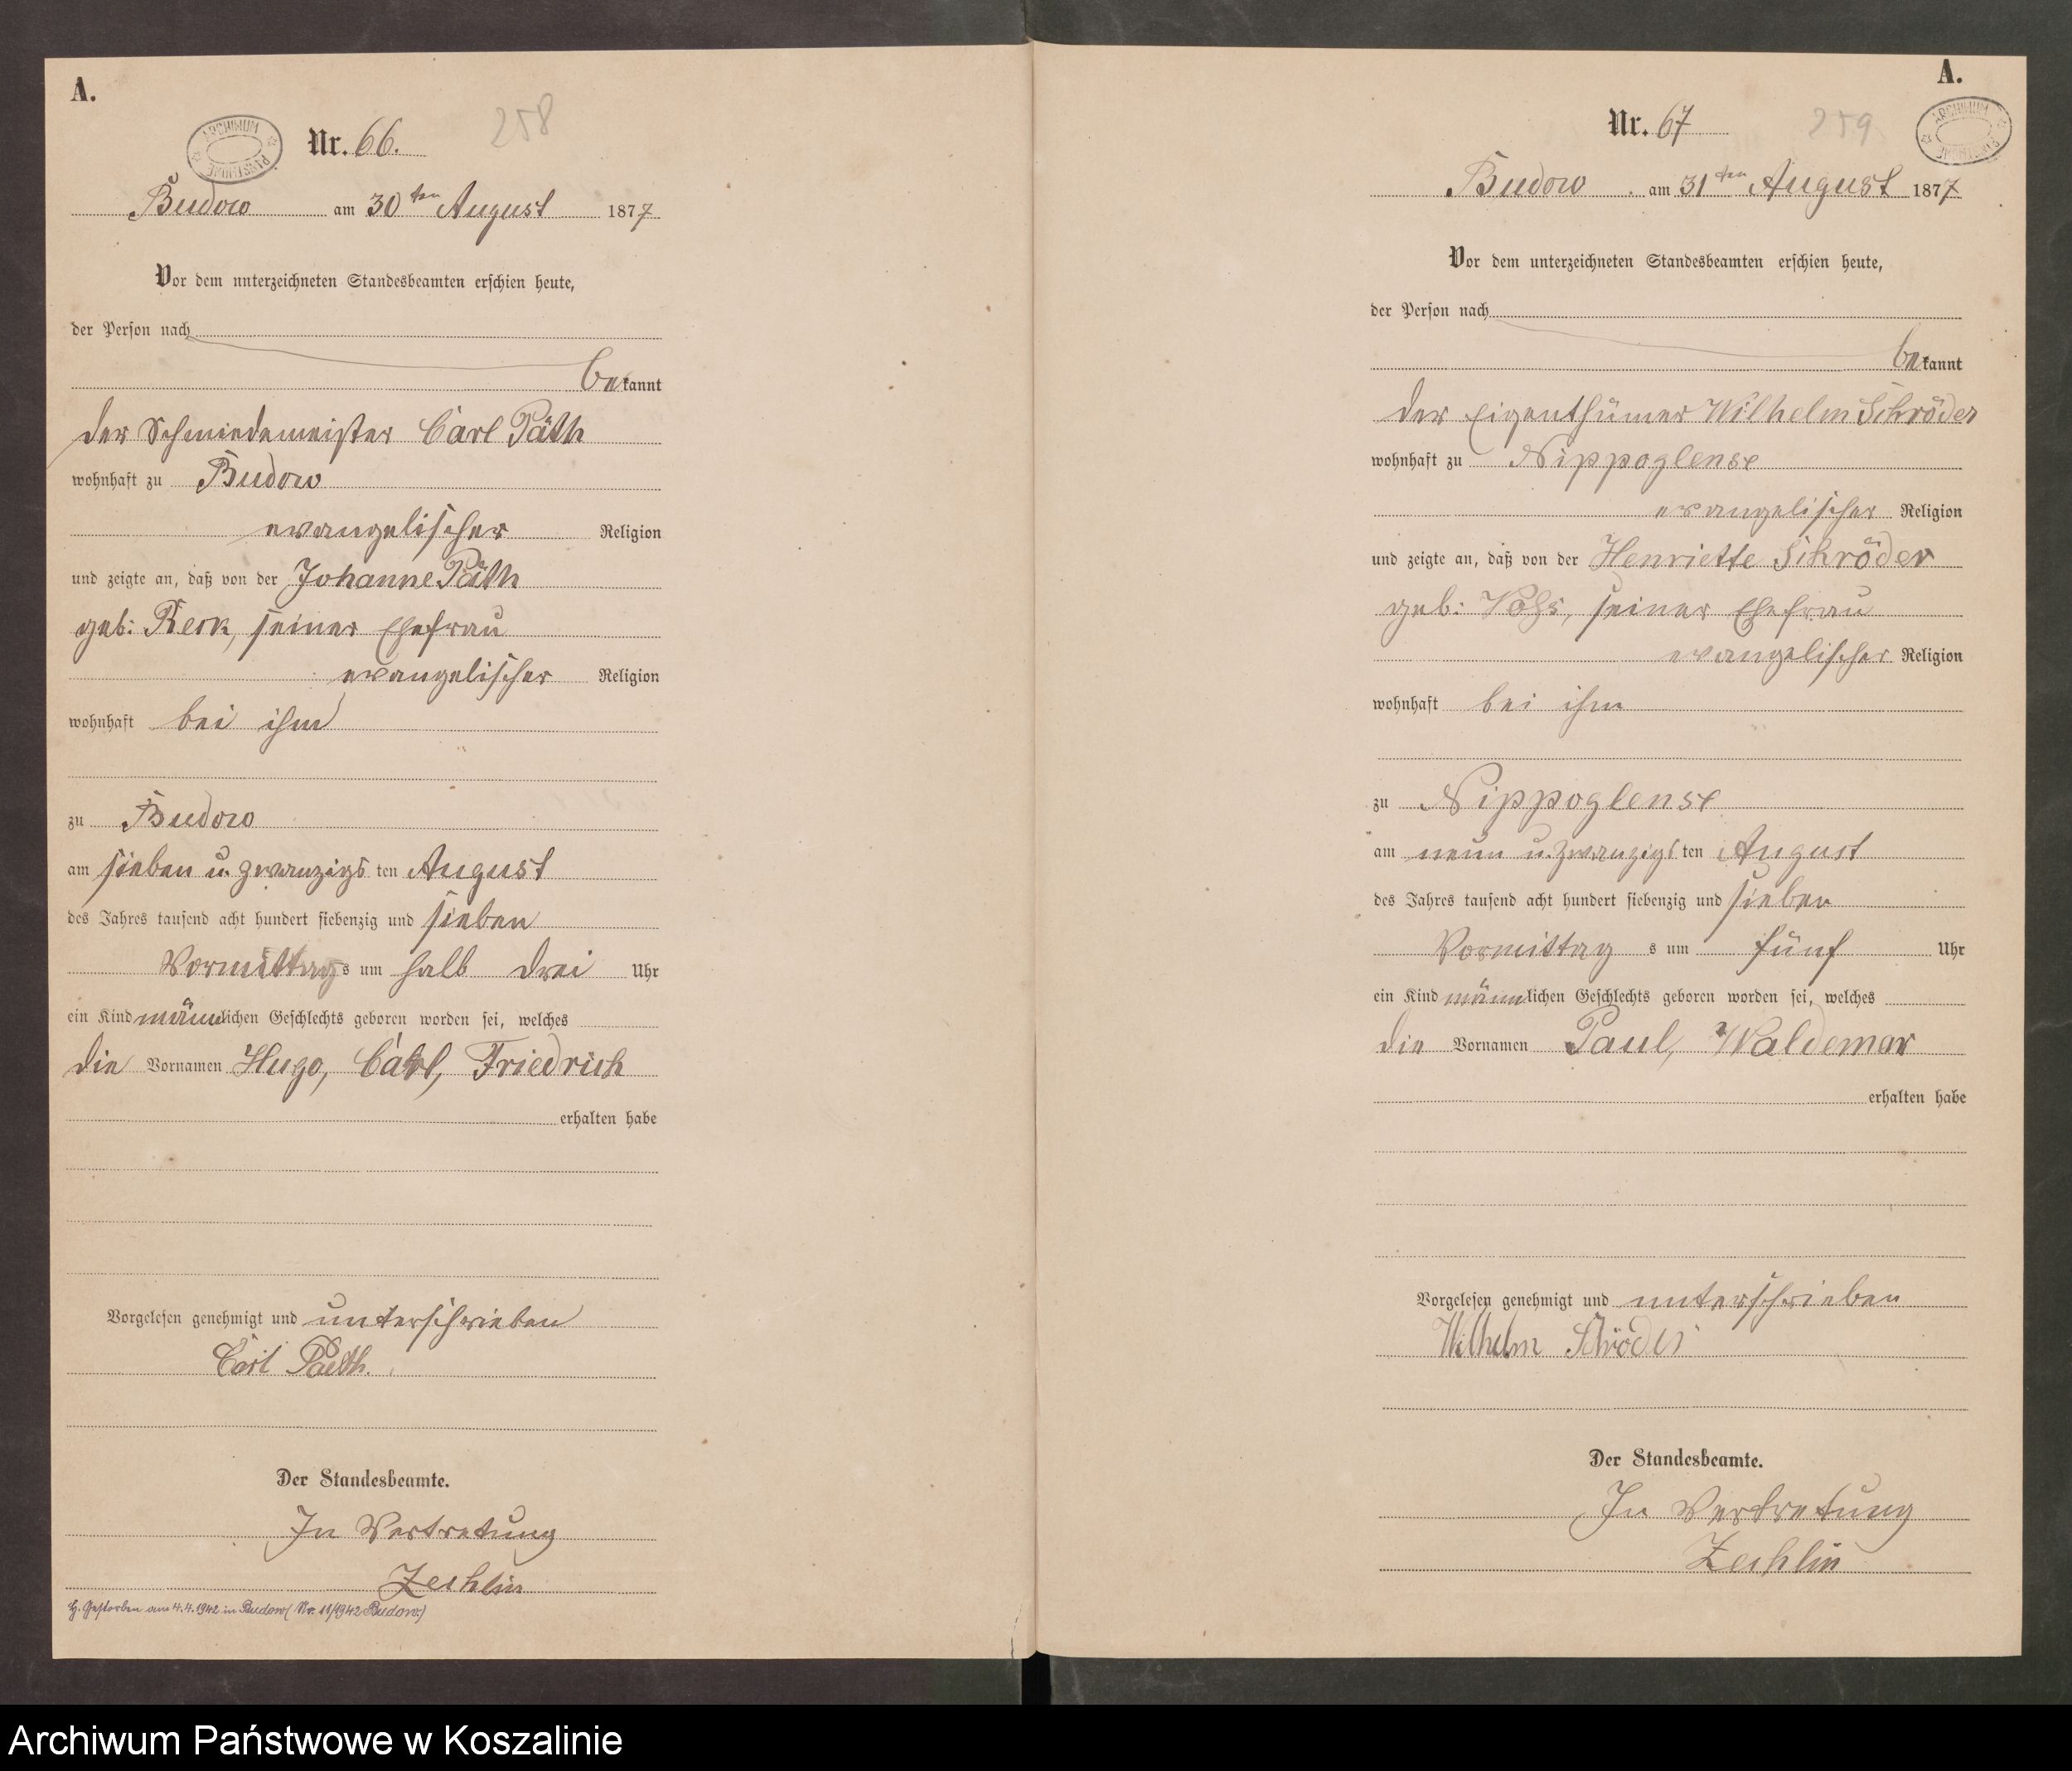 A.
ARCHIWUM PAŃSTWOWE
Nr. 66.
258
Budow am 30ten August 1877.
Vor dem nnterzeichneten Standesbeamten erschien heute,
der Person nach
bekannt
der Schmiedemeister Carl Päth
wohnhaft zu Budow
evangelischer Religion
und zeigte an, daß von der Johanne Päth
geb: Reck, seiner Ehefrau
evangelischer Religion
wohnhaft bei ihm
zu Budow
am sieben u. zwanzigs ten August
des Jahres tausend acht hundert siebenzig und sieben
Vormittags um halb drei Uhr
ein Kind männlichen Geschlechts geboren worden sei, welches
die Vornamen Hugo, Carl, Friedrich
erhalten habe
Vorgelesen genehmigt und unterschrieben
Carl Paeth.
Der Standesbeamte.
In Vertretung
Zechlin
H. Gestorben am 4.4.1942 in Budow (Nr. 11/1942 Budow)
A.
Nr. 67
259
ARCHIWUM PAŃSTWOWE
Budow am 31ten August 1877
Vor dem unterzeichneten Standesbeamten erschien heute,
der Person nach
bekannt
der Eigenthümer Wilhelm Schröder
wohnhaft zu Nippoglense
evangelischer Religion
und zeigte an, daß von der Henriette Schröder
geb: Vohs, seiner Ehefrau
evangelischer Religion
wohnhaft bei ihm
zu Nippoglense
am neun u. zwanzigs ten August
des Jahres tausend acht hundert siebenzig und sieben
Vormittag s um fünf Uhr
ein Kind männlichen Geschlechts geboren worden sei, welches
die Vornamen Paul, Waldemar
erhalten habe
Vorgelesen genehmigt und unterschrieben
Wilhelm Schröder
Der Standesbeamte.
In Vertretung
Zechlin
Archiwum Państwowe w Koszalinie